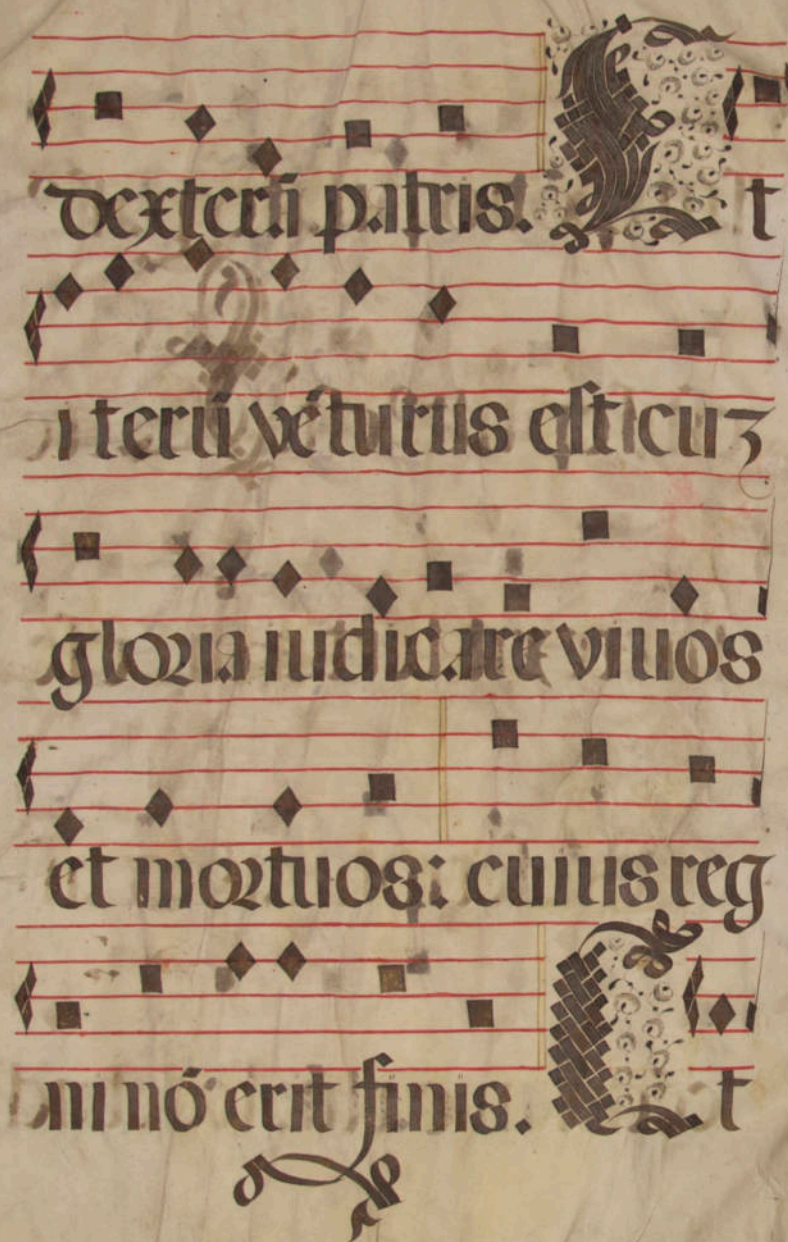 dexterā patris. Et
iterū vēturus est cuz
gloria iudicare viuos
et mortuos: cuius reg
ni nō erit finis. Et